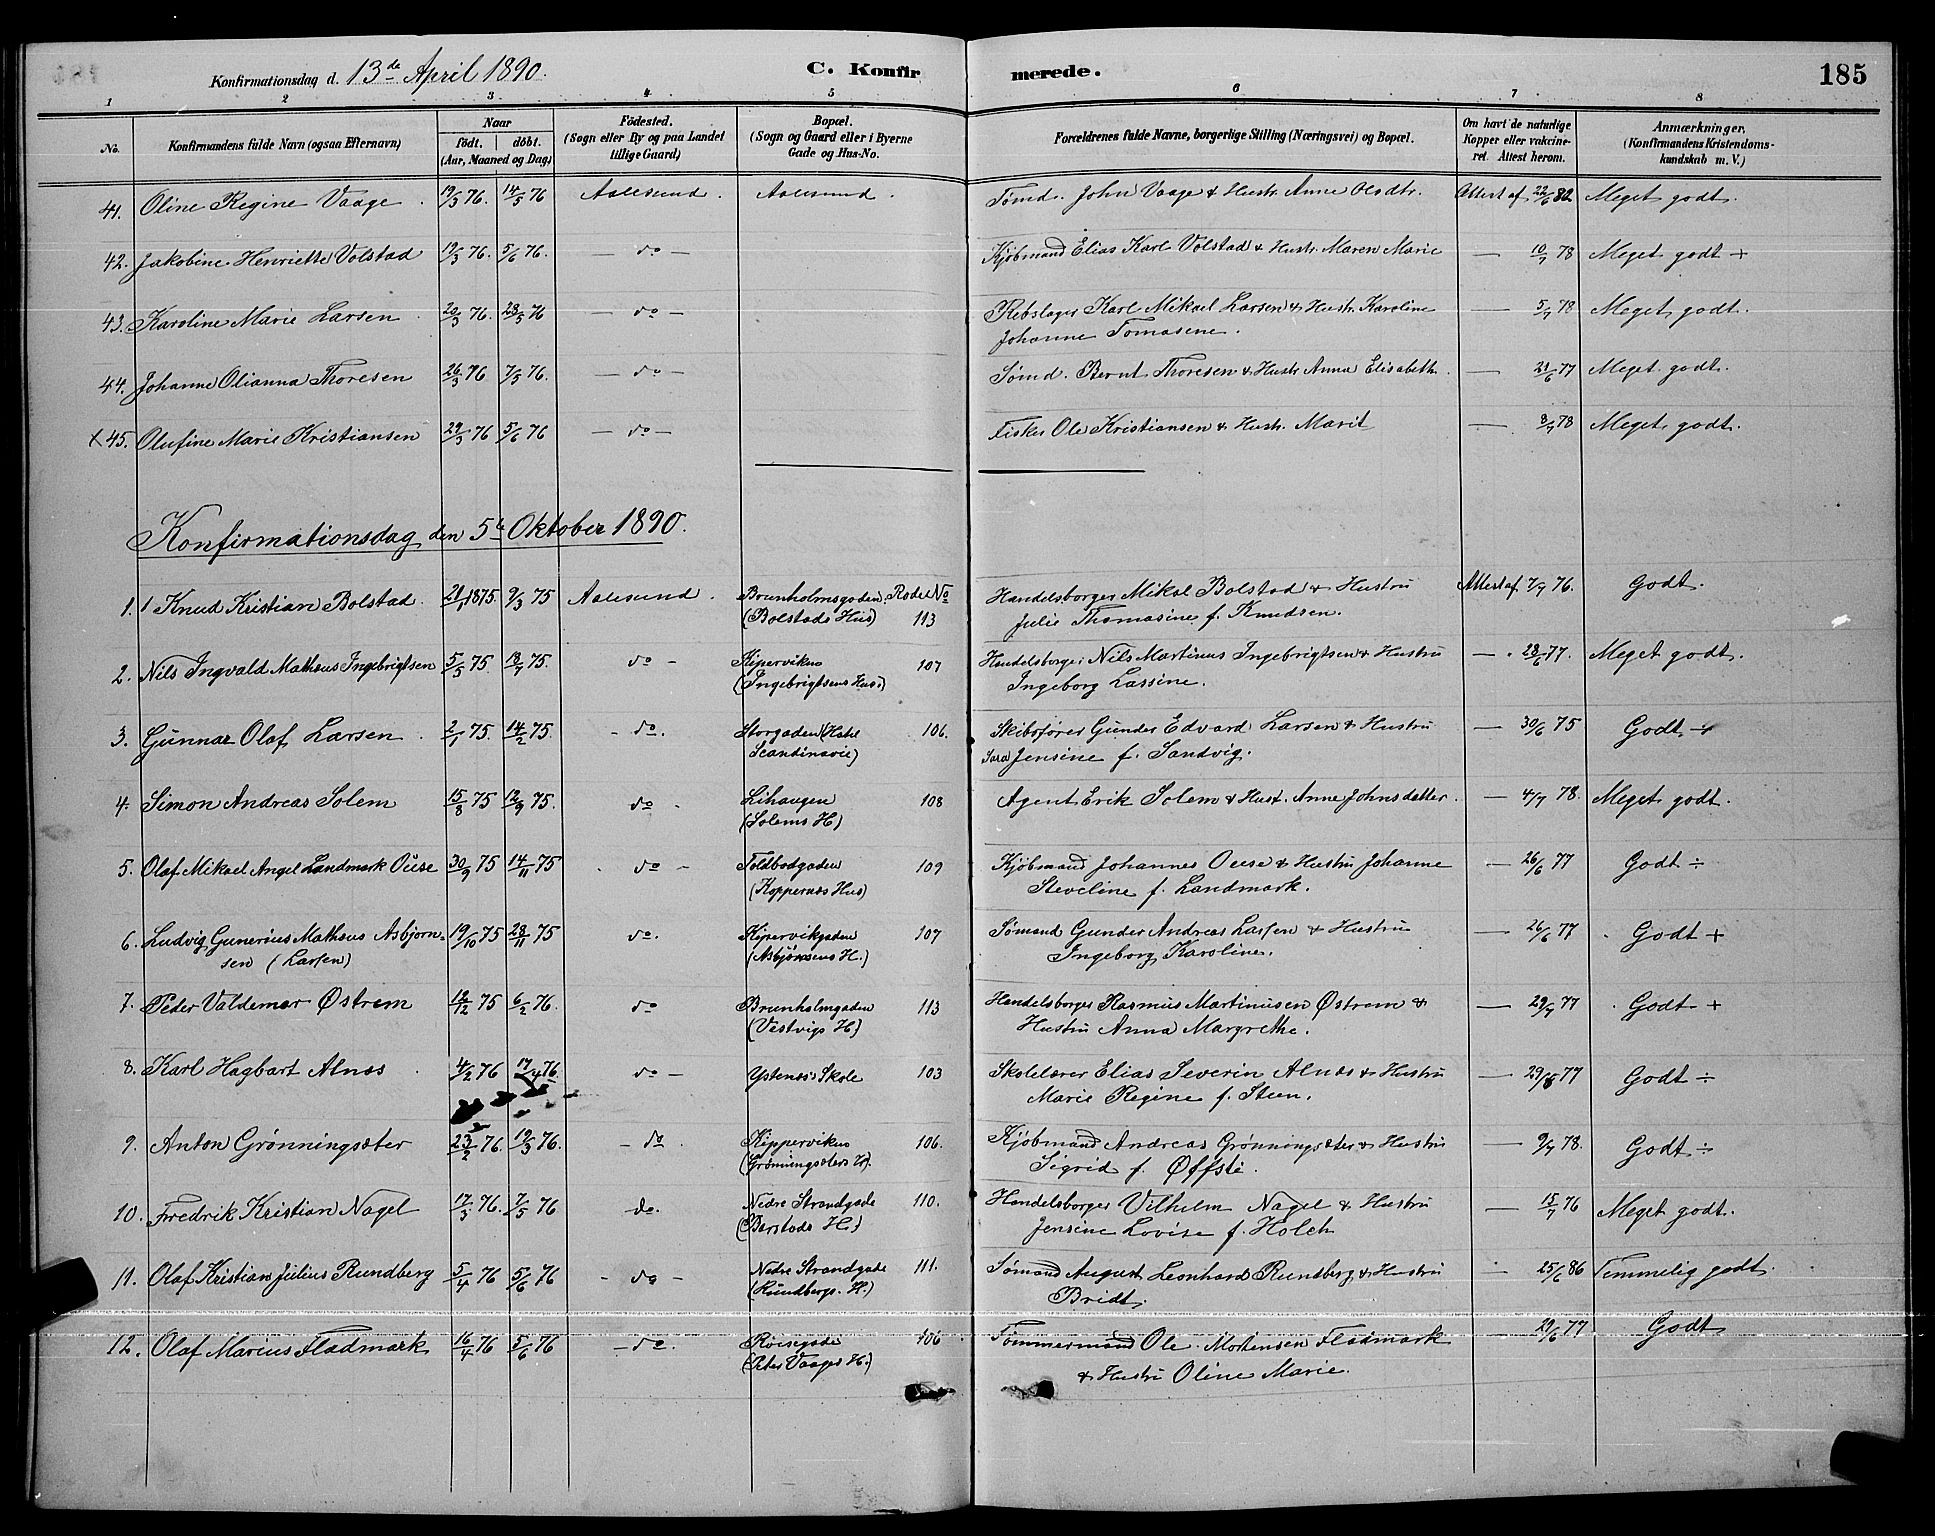 Konfirmationsdag d. 13de April 1890.
C. Konfirmerede.
185
1 2 3 4 5 6 7 8
No. Konfirmandens fulde Navn (ogsaa Efternavn) Naar födt. döbt. (Aar, Maaned og Dag) Födested. (Sogn eller By og paa Landet tillige Gaard) Bopæl. (Sogn og Gaard eller i Byerne Gade og Hus-No. Forældrenes fulde Navne, borgerlige Stilling (Næringsvei) og Bopæl. Om havt de naturlige Kopper eller vakcineret. Attest herom. Anmærkninger. (Konfirmandens Kristendomskundskab m. V.)
41. Oline Regine Vaage. 19/3 76. 14/5 76 Aalesund. Aalesund. Tømd. John Vaage & Hustr. Anne Olsdtr. Attest af 22/6 82 Meget godt.
42. Jakobine Henriette Volstad 19/3 76. 5/6 76. — do — Kjøbmand Elias Karl Volstad & Hustr. Maren Marie — 10/7 78 Meget godt +
43. Karoline Marie Larsen. 20/3 76. 28/5 76 — do — Rebslager Karl Mikael Larsen & Hustr. Karoline — 5/7 78 Meget godt.
Johanne Tomasene.
44. Johanne Olianna Thoresen 26/3 76 7/5 76. — do — Sømd. Bernt Thoresen & Hustr. Anna Elisabeth. — 21/6 77 Meget godt.
x 45. Olufine Marie Kristiansen 29/3 76 5/6 76 — do — Fisker Ole Kristiansen & Hustr. Marit — 8/7 78 Meget godt.
Konfirmationsdag den 5te Oktober 1890.
1. 1 Knud Kristian Bolstad. 21/1 1875. 9/3 75 Aalesund. Brunholmsgaden. Rode No Handelsborger Mikal Bolstad & Hustru Attest af 7/9 76. Godt.
(Bolstads Hus) 113 Julie Thomasine f. Knudsen.
2. Nils Ingvald Matheus Ingebrigtsen 5/5 75. 18/7 75. do — Kipervikens 107 Handelsborger Nils Martinus Ingebrigtsen & Hustru — 28/6 77. Meget godt.
(Ingebrigtsens Hus.) Ingeborg Lassine.
3. Gunnar Olaf Larsen. 2/1 75. 14/2 75. - do. Storgaden (Hotel 106. Skibsfører Gunder Edvard Larsen & Hustru — 30/6 75 Godt ÷
Scandinavie) Sara Jensine f. Sandvig.
4. Simon Andreas Solem 15/8 75 12/9 75. do - Lihaugen 108 Agent Erik Solem & Hust. Anne Johnsdatter. — 4/7 78. Meget godt.
(Solems H)
5. Olaf Mikael Angel Landmark Ouse 30/9 75 14/11 75 do - Toldbodgaden 109 Kjøbmand Johannes Ouse & Hustru Johanne — 26/6 77 Godt ÷
(Koppernæs Hus) Steveline f. Landmark.
6. Ludvig Gunerius Matheus Asbjørn- 19/10 75 28/11 75 do. Kipervikgaden 107 Sømand Gunder Andreas Larsen & Hustru — 26/6 77 Godt +
sen (Larsen) (Asbjørnsens H.) Ingeborg Karoline.
7. Peder Valdemar Østrem 12/12 75 6/2 76. do Brunholmgaden 113 Handelsborger Rasmus Martinusen Østrem & — 29/7 77 Godt +
(Vestvigs H) Hustru Anna Margrethe.
8. Karl Hagbart Alnæs 4/2 76 17/4 76. do — Ystenæs Skole 103 Skolelærer Elias Severin Alnæs & Hustru — 29/6 77 Godt ÷
Marie Regine f. Steen.
9. Anton Grønningsæter 23/2 76. 19/3 76. - do. Kippervikens 106. Kjøbmand Andreas Grønningsæter & Hustru — 9/7 78. Godt ÷
(Grønningsæters H). Sigrid f. Øffsti.
10. Fredrik Kristian Nagel 17/3 76. 7/5 76 do. Nedre Strandgade 110. Handelsborger Vilhelm Nagel & Hustru — 15/7 76 Meget godt.
(Barstads H.) Jensine Lovise f. Holch
11. Olaf Kristian Julius Rundberg 5/4 76 5/6 76 - do - Nedre Strandgade 111. Sømand August Leonhard Rundberg & Hustru 25/6 86 Temmelig godt.
(Rundbergs H.) Bridt.
12. Olaf Marius Fladmark 16/4 76 5/6 76 - do. Røisegade 106 Tømmermand Ole Mortensen Fladmark — 29/6 77 Godt
(Peter Vaages H.) & Hustru Oline Marie.